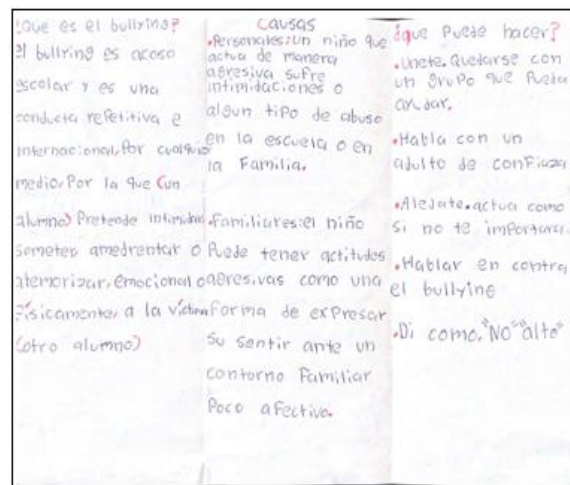 ¿Que es el bullying?
El bullying es acoso
escolar y es una
conducta repetitiva e
internacional, Por cualquier
medio, Por la que (un
alumno) Pretende intimidar
someter, amedrentar o
atemorizar, emocional o
Físicamente, a la víctima
(otro alumno)
Causas
•Personales: Un niño que
actua de manera
agresiva sufre
intimidaciones o
algun tipo de abuso
en la escuela o en
la Familia.
•Familiares: el niño
Puede tener actitudes
agresivas como una
Forma de exPresar
Su sentir ante un
contorno Familiar
Poco aFectivo.
¿que Puede hacer?
•Unete. Quedarse con
un grupo que Pueda
ayudar.
•Habla con un
adulto de conFiaza
•Alejate. actua como
si no te importara.
•Hablar en contra
el bullying
•Di como, "No" "alto"